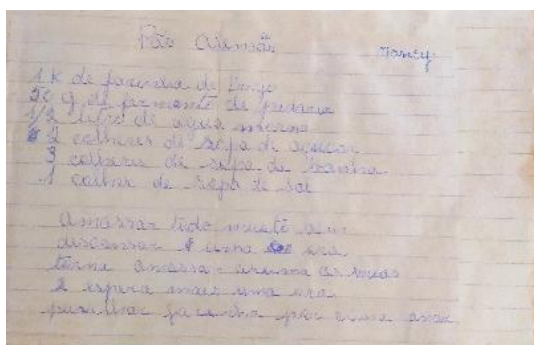 Pão Alemão
1 K de farinha de trigo
50 g de fermento de padaria
1/2 litro de agua morna
2 colheres de sopa de açucar
3 colheres de sopa de banha
1 colher de sopa de sal
amassar tudo muito
discansar 1 uma ora
torna amassar
e espera mais uma ora
farinha por cima